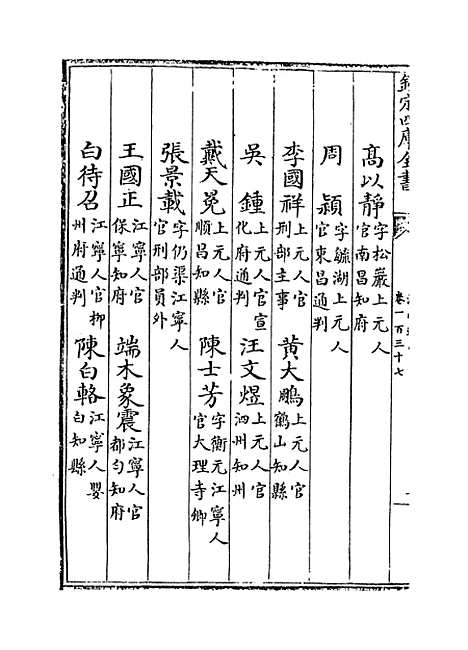 欽定四庫全書
卷一百三十七
高以靜字松巖上元人官南昌知府
周　頴字毓湖上元人官東昌通判
李國祥上元人官刑部主事　黃大鵬上元人官鶴山知縣
吳　鍾上元人官宣化府通判　汪文煜上元人官泗州知州
戴天冕上元人官順昌知縣　陳士芳字衡元江寧人官大理寺卿
張景載字仍渠江寧人官刑部員外
王國正江寧人官保寧知府　端木象震江寧人官都勻知府
白待召江寧人官柳州府通判　陳白輅江寧人嬰白知縣